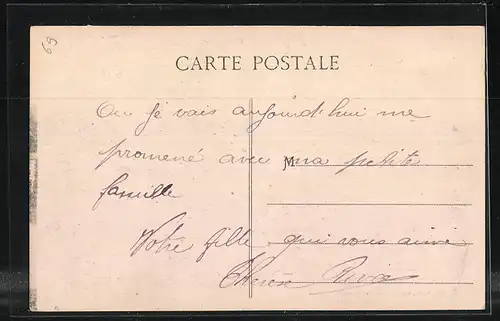 63
CARTE POSTALE
Ou je vais aujourd'hui me
promené avec ma petite
M
famille
Votre fille qui vous aime